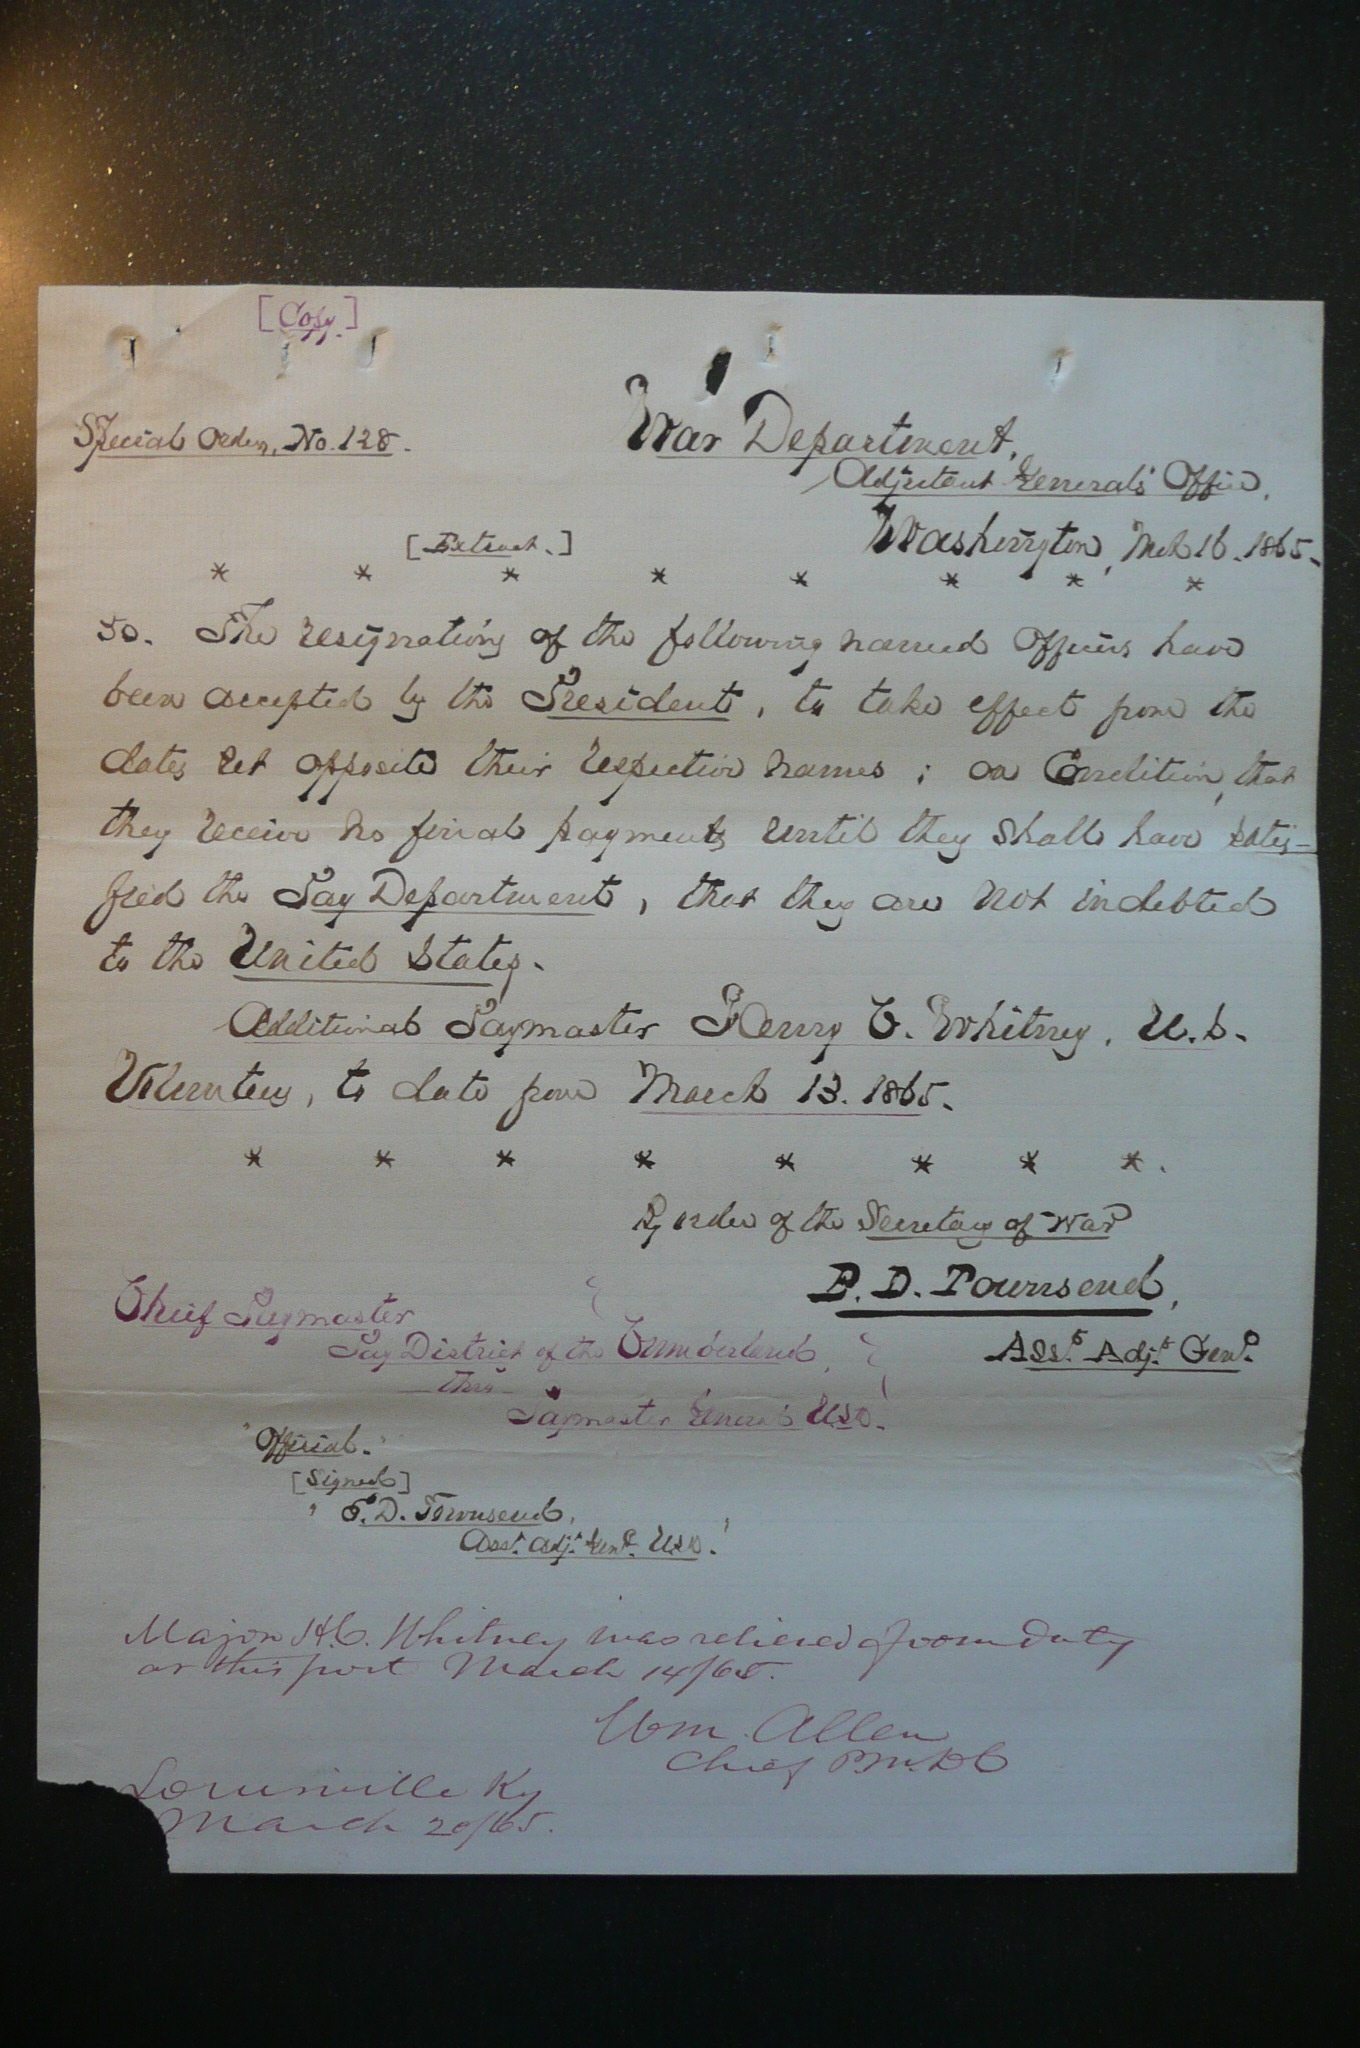 [Copy.]
Special Orders, No. 128.
War Department,
Adjutant Generals' Office,
Washington, Mch 16. 1865.
[Extract.]
* * * * * * * *
50. The resignations of the following named Officers have
been accepted by the President, to take effect from the
dates set opposite their respective names; on Condition, that
they receive no final payments until they shall have satis-
fied the Pay Department, that they are not indebted
to the United States.
Additional Paymaster Henry C. Whitney, U.S.
Volunteers, to date from March 13. 1865.
* * * * * * * *.
By order of the Secretary of War
E. D. Townsend,
Asst. Adjt. Genl.
Chief Paymaster
Pay District of the Cumberland,
thro
Paymaster General U.S.A.
"Official."
[Signed]
" E. D. Townsend,
Asst. Adjt. Genl. U.S.A."
Major H.C. Whitney was relieved from duty
at this post March 14/65.
Wm. Allen
Chief P.M. D C
Louisville Ky
March 20/65.